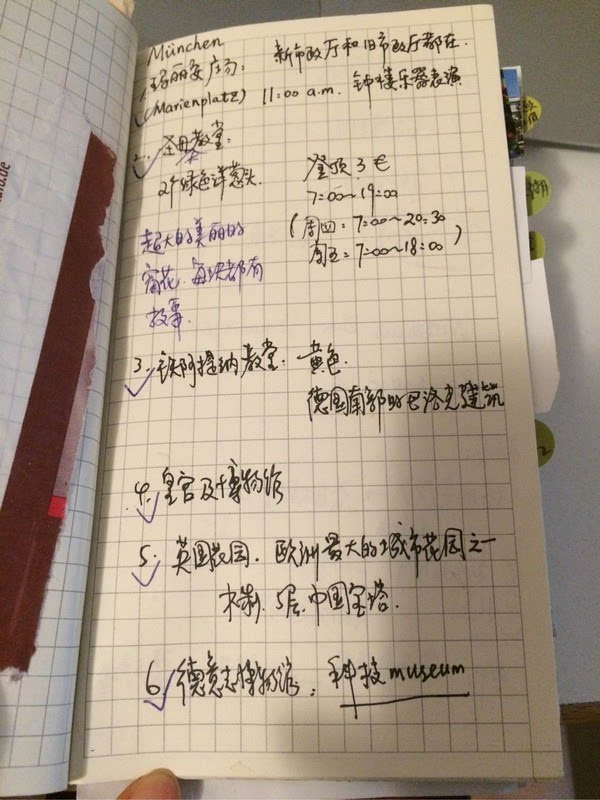 München
1. 玛丽安广场： 新市政厅和旧市政厅都在.
(Marienplatz) 11:00 a.m. 钟楼乐器表演
2. 圣母教堂： 登顶 3 €
2个绿色洋葱头. 7:00～19:00
(周四：7:00～20:30
周五：7:00～18:00)
超大的美丽的
窗花. 每块都有
故事.
3. 铁阿提纳教堂： 黄色.
德国南部的巴洛克建筑
4. 皇宫及博物馆
5. 英国花园. 欧洲最大的城市花园之一
木制. 5层. 中国宝塔.
6. 德意志博物馆： 科技 museum
2